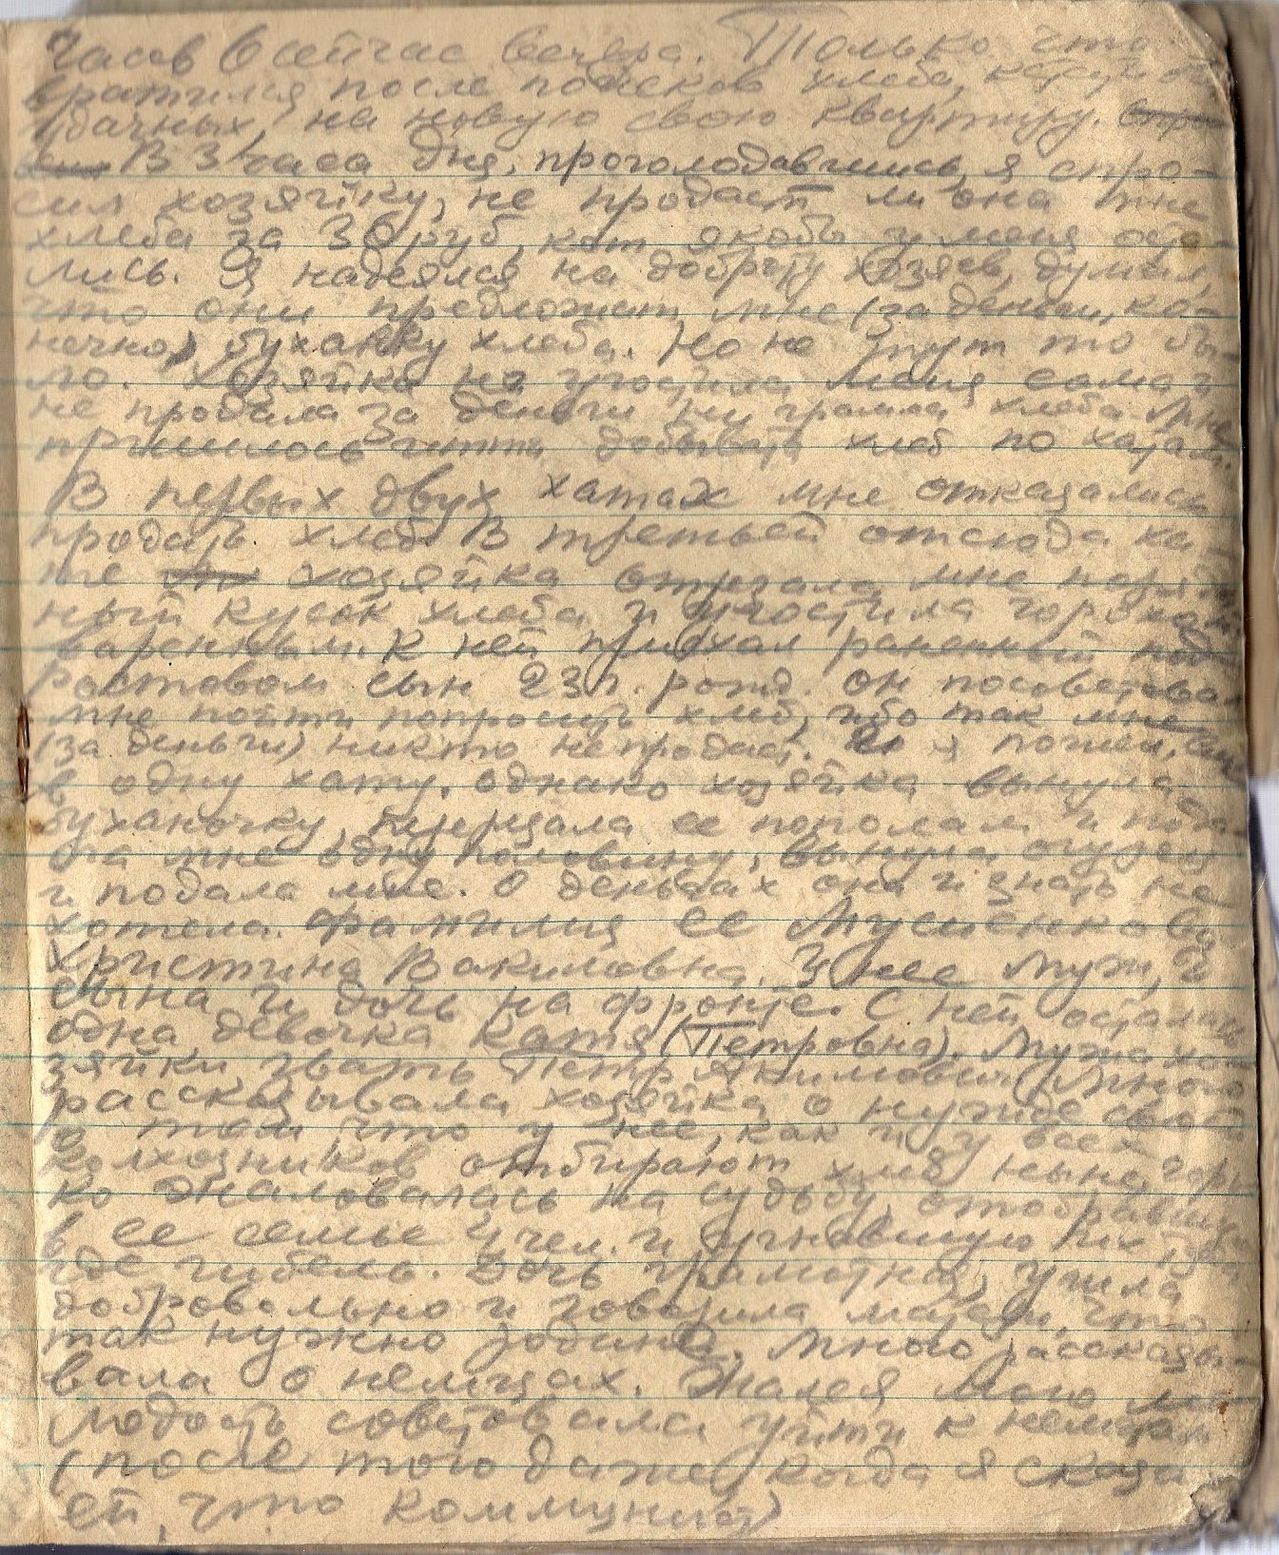 Часов 6 сейчас вечера. Только что
вратился после поисков хлеба,
дачных, на новую свою квартиру.
В 3 часа дня, проголодавшись, я спро-
сил хозяйку, не продаст ли она мне
хлеба за 36 руб, кот якобы у меня оста-
лись. Я надеялся на доброту хозяев, думал,
что они предложат мне (за деньги, ко-
нечно) буханку хлеба. Но не тут то бы-
ло. Хозяйка не угостила меня сама и
не продала за деньги ни грамма хлеба. Мне
пришлось идти добывать хлеб по хатам.
В первых двух хатах мне отказались
продать хлеб. В третьей отсюда ха-
те хозяйка отрезала мне порядоч
ный кусок хлеба и угостила горячим
варенным. К ней приехал раненный под
Ростовом сын 23 г. рожд. он посоветовал
мне пойти попросить хлеб, ибо так мне
(за деньги) никто не продаст. я пошел, еще
в одну хату. однако хозяйка вынула
буханочку, перерезала ее пополам и пода-
ла мне одну половину, вынула огурец
и подала мне. О деньгах она и знать не
хотела. Фамилия ее
Христина Вакиловна. У нее муж, 2
сына и дочь на фронте. С ней осталась
одна девочка Катя (Петровна). Мужа хо-
зяйки звать Петр Акимович. Много
рассказывала хозяйка о нужде своей
о том, что у нее, как и у всех
колхозников отбирают хлеб ныне, горь
ко жаловалась на судьбу, отобравшую
в ее семье 4 чел. и угнавшую их туда
где гибель. Дочь грамотна, ушла
добровольно и говорила матери, что
так нужно родине. Много рассказы-
вала о немцах. Жалея мою мо
лодость советовала уйти к немцам
(после того даже, когда я сказал
ей, что коммунист)